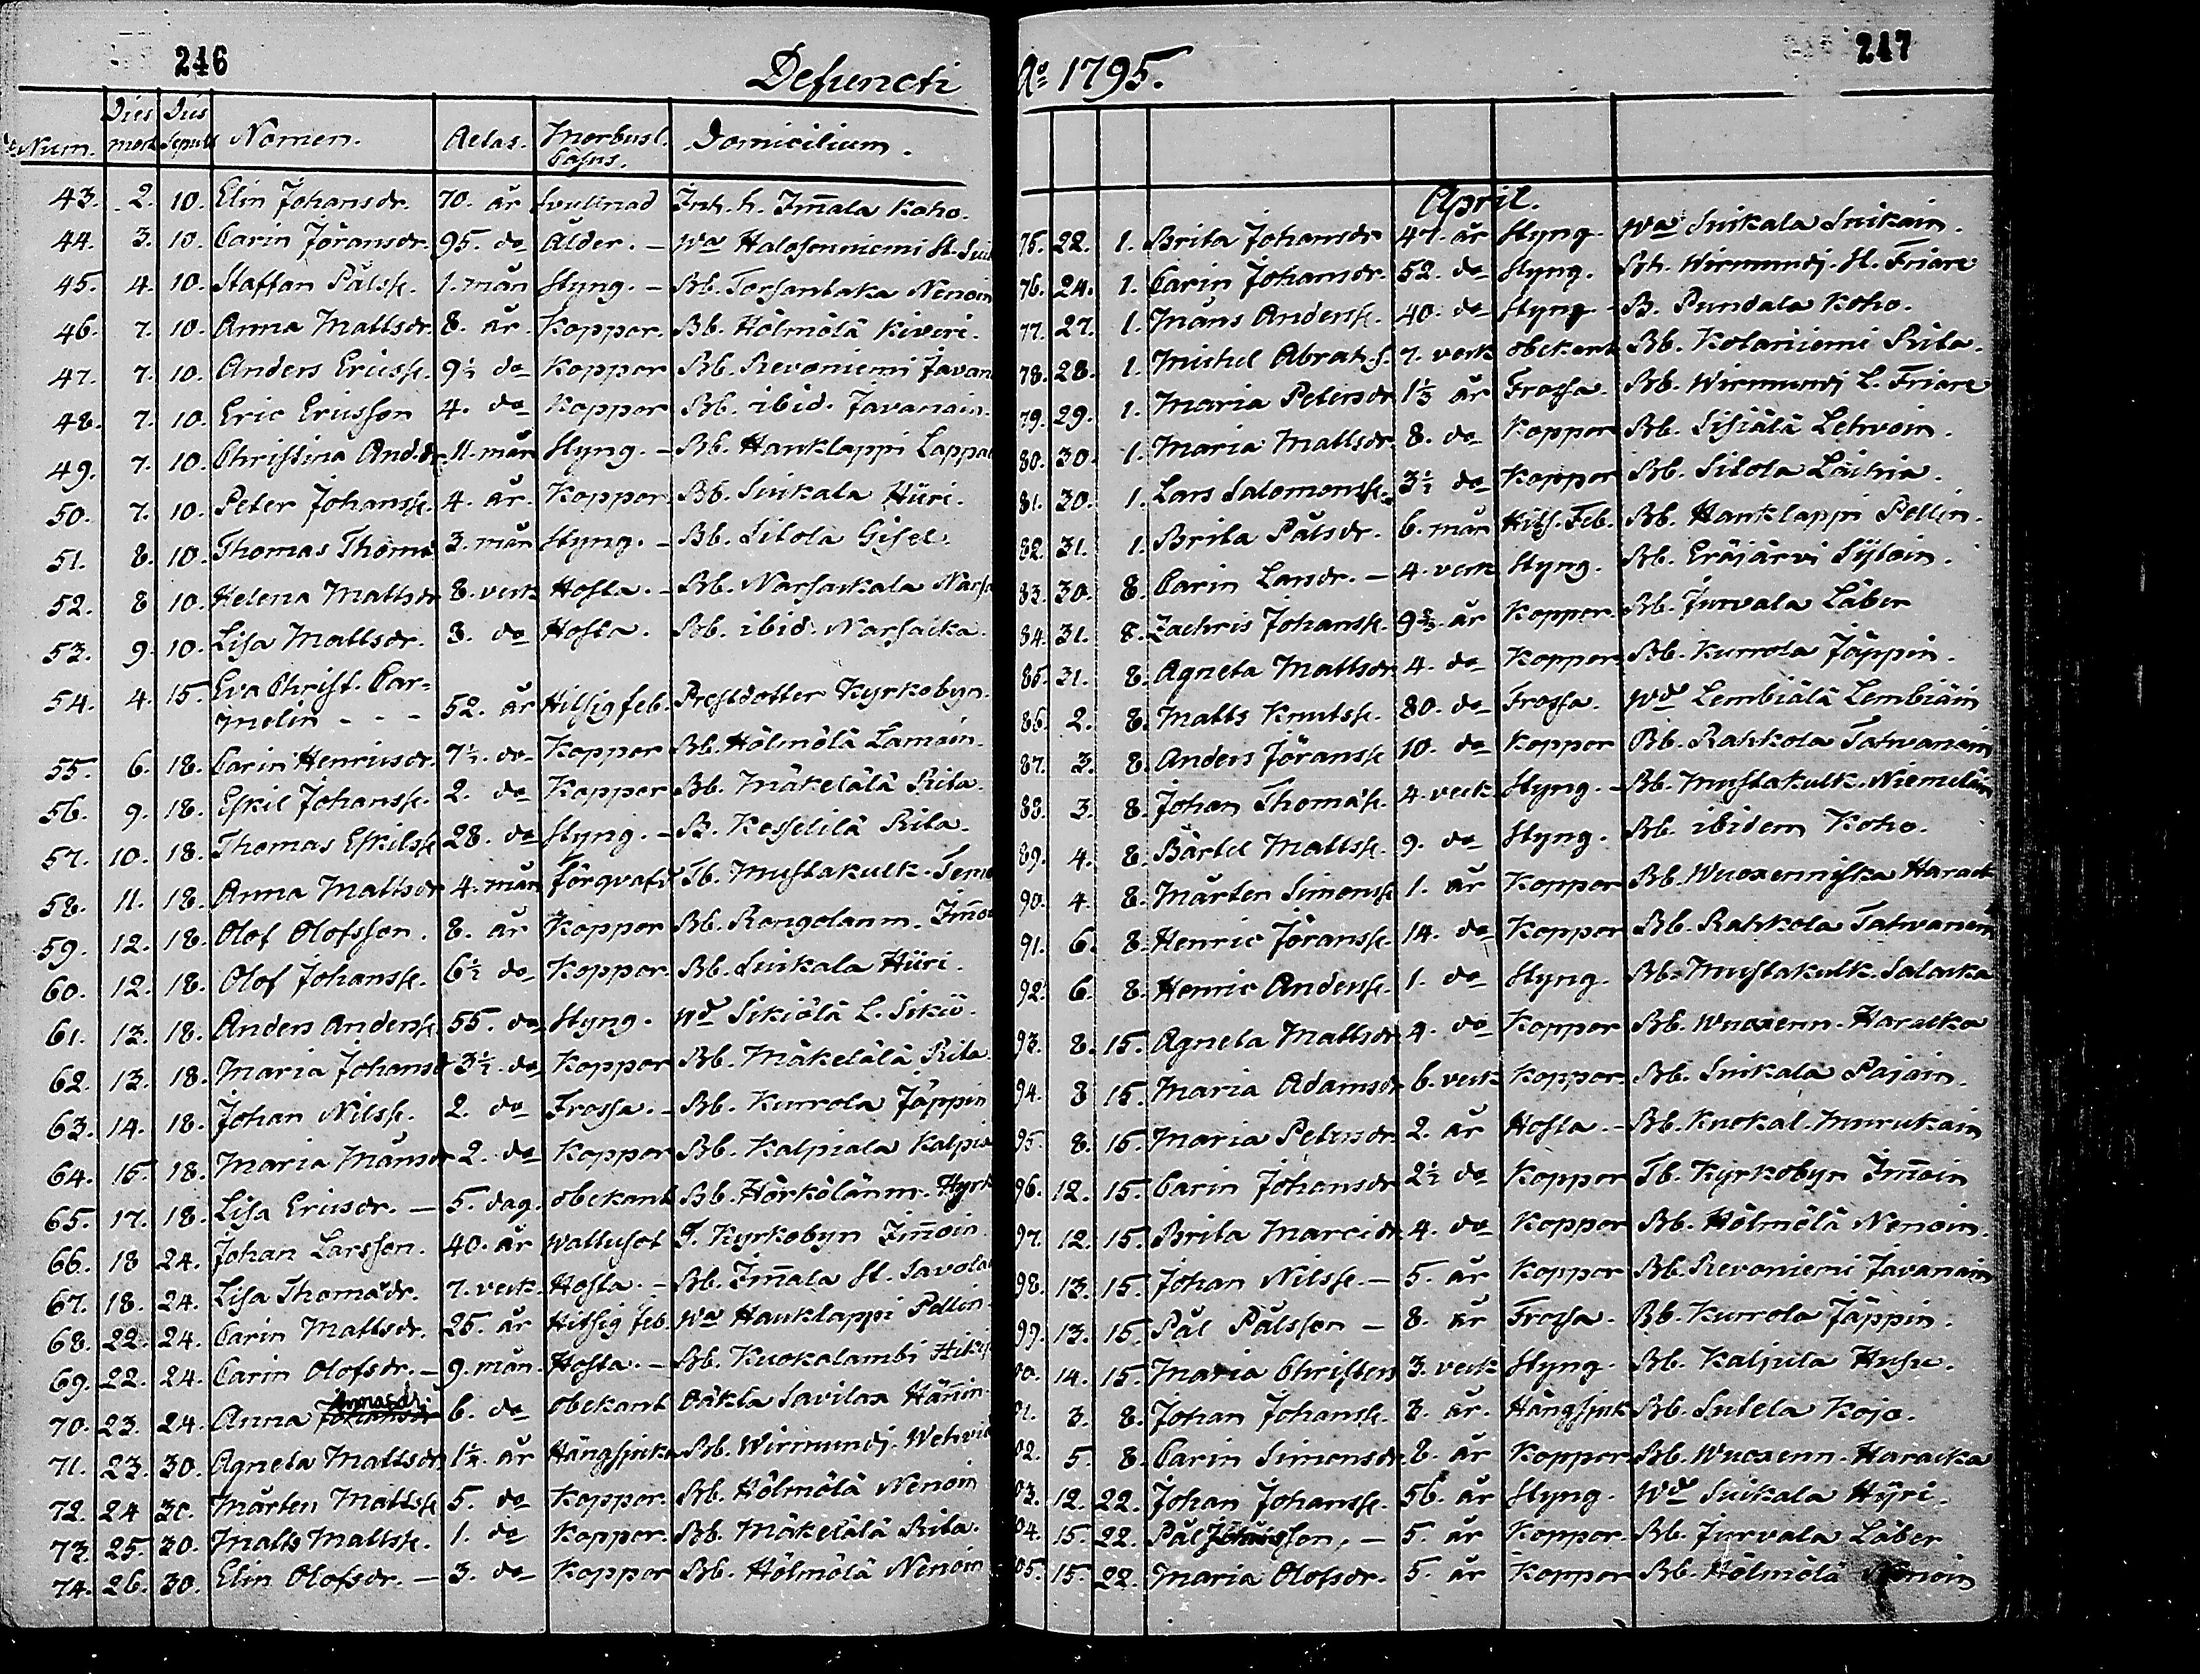 246
Defuncti
Num. Dies mort. Dies Sepult. Nomen. Aetas. Morbus l. Casus. Domicilium.
43. 2. 10. Elin Johansdr. 70. år Svullnad Inh. h. Im̄ala Koho.
44. 3. 10. Carin Jöransdr. 95. do Ålder. – Wa Halosenniemi St.
45. 4. 10. Staffan Pålss. 1. mån Styng. – Bb. Torsantaka Nenoin
46. 7. 10. Anna Mattsdr. 8. år. Koppor. Bb. Hölmölä Kiveri.
47. 7. 10. Anders Ericss. 9½ do Koppor Bb. Revoniemi Javan
48. 7. 10. Eric Ericsson 4. do Koppor Bb. ibid. Javanain.
49. 7. 10. Christina And.dr. 11. mån Styng. – Bb. Hauklappi Lappa
50. 7. 10. Peter Johanss. 4. år. Koppor Bb. Suikala Hüri.
51. 8. 10. Thomas Thoms 3. mån Styng. – Bb. Sitola Gisel.
52. 8 10. Helena Mattsdr 8. veck Hosta. – Bb. Narsaikala Narsa
53. 9. 10. Lisa Mattsdr. 3. do Hosta. Bb. ibid. Narsaicka.
54. 4. 15. Eva Christ. Car=
melin - - - 52. år Hitsig feb. Prestdotter Kyrkobyn.
55. 6. 18. Carin Henricsdr. 7½. do Koppor Bb. Hölmölä Lamoin.
56. 9. 18. Eskil Johanss. 2. do Koppor Bb. Mäkelälä Rita.
57. 10. 18. Thomas Eskilss 28. do Styng. – B. Kesselilä Rita.
58. 11. 18. Anna Mattsdr 4. mån Förqvafd Tb. Mustakulk.
59. 12. 18. Olof Olofsson. 8. år Koppor Bb. Rongolanm. Im̄o
60. 12. 18. Olof Johanss. 6½ do Koppor. Bb. Suikala Hüri.
61. 13. 18. Anders Anderss. 55. do Styng. Wd Sikiölä L. Sikiö.
62. 13. 18. Maria Johansd 3½ do Koppor Bb. Mäkelälä Rita
63. 14. 18. Johan Nilss. 2. do Frossa. – Bb. Kurrola Jäppin
64. 15 18. Maria Månsdr 2. do Koppor Bb. Kalpiala Kalpia
65. 17. 18. Lisa Ericsdr. – 5. dag. obekant Bb. Hörkölänm. Hyrk
66. 18 24. Johan Larsson. 40. år Wattusot T. Kyrkobyn Im̄oin.
67. 18. 24. Lisa Thomædr. 7. veck. Hosta. – Bb. Im̄ala St. Savola
68. 22. 24. Carin Mattsdr. 25. år Hitsig feb. Wa Hauklappi Pellin
69. 22. 24. Carin Olofsdr. – 9. mån. Hosta. – Bb. Kuokalambi
70. 23. 24. Anna Annasdr. 6. do obekant Oäkta Savilax Hän̄in
71. 23. 30. Agneta Mattsdr 1¼. år Hängsjuka Bb. Wirmundj.
72. 24 30. Mårten Mattss 5. do Koppor. Bb. Hölmölä Nenoin
73. 25. 30. Matts Mattss. 1. do Koppor. Bb. Mäkelälä Rita.
74. 26. 30. Elin Olofsdr. – 3. do Koppor Bb. Hölmölä Nenoin
247
Ao 1795.
April.
75. 22. 1. Brita Johansdr 47. år Styng. Wa Suikala Suikain.
76. 24. 1. Carin Johansdr. 52. do Styng. Bh. Wirmundj. St. Friare
77. 27. 1. Måns Anderss. 40. do Styng – B. Pundala Koho.
78. 28. 1. Michel Abrah.s. 7. veck obekant Bb. Kotaniemi Rita.
79. 29. 1. Maria Petersdr 1½ år Frossa. Bb. Wirmundj L. Friare
80. 30. 1. Maria Mattsdr. 8. do Koppor Bb. Sisiälä Lehvoin.
81. 30. 1. Lars Salomonss. 3½ do Koppor Bb. Sitola Laihia.
82. 31. 1. Brita Pålsdr. 6. mån Hits. Feb. Bb. Hauklappi Pellin.
83. 30. 8. Carin Larsdr. – 4. veck Styng. Bb. Eräjärvi Sÿtoin.
84. 31. 8. Zachris Johanss. 9⅔ år Koppor. Bb. Jurvala Läber
85. 31. 8. Agneta Mattsdr 4. do Koppor. Bb. Kurrola Jäppin.
86. 2. 8. Matts Knutss. 80. do Frossa. Wd Lembiälä Lembiäin
87. 3. 8. Anders Jöranss 10. do Koppor Bb. Rahkola Tatvanain
88. 3. 8. Johan Thomæs. 4. veck Styng. – Bb. Mustakulk. Niemeläin
89. 4. 8. Bärtel Mattss. 9. do Styng. Bb. ibidem Koho.
90. 4. 8. Mårten Simonss 1. år Koppor Bb. Wuoxenniska Harack
91. 6. 8. Henric Jöranss. 14. do Koppor Bb. Rahkola Tatvanain
92. 6. 8. Henric Anderss. 1. do Styng. Bb. Mustakulk. Salacka
93. 8. 15. Agneta Mattsdr 4. do Koppor Bb. Wuoxenn. Haracka
94. 8 15. Maria Adamsdr 6. veck Koppor. Bb. Suikala Pajain.
95. 8. 15. Maria Petersdr. 2. år Hosta. – Bb. Kuokal. Murukain
96. 12. 15. Carin Johansdr 2½ do Koppor Tb. Kyrkobyn Im̄oin
97. 12. 15. Brita Marcidr 4. do Koppor Bb. Hölmölä Nenoin.
98. 13. 15. Johan Nilss. – 5. år Koppor Bb. Revoniemi Javanain
99. 13. 15. Pål Pålsson – 8. år Frossa. Bb. Kurrola Jäppin.
00. 14. 15. Maria Christers 3. veck Styng. Bb. Kaljula Husu.
01. 3. 8. Johan Johanss. 3. år. Hängsjuk Bb. Sutela Kojo.
02. 5. 8. Carin Simonsdr. 8. år Koppor Bb. Wuoxenn. Haracka
03. 12. 22. Johan Johanss. 56. år Styng. Wd Suikala Hÿri.
04. 15. 22. Pål – 5. år Koppor. Bb. Jurvala Läber
05. 15. 22. Maria Olofsdr. 5. år Koppor Bb. Hölmölä Nenoin